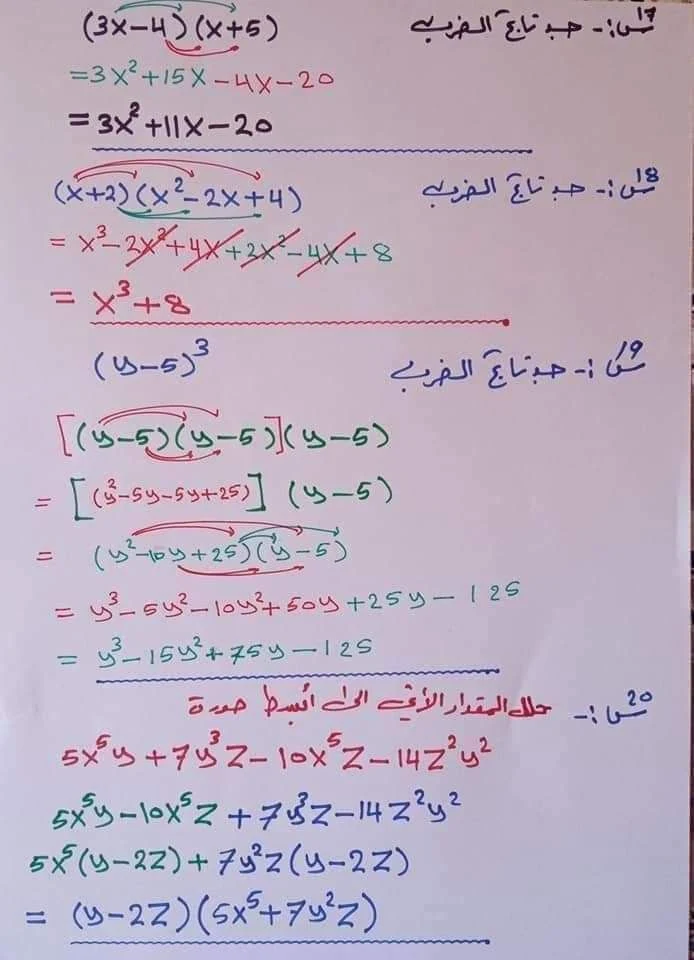 س17:- جد ناتج الضرب (3x-4)(x+5)
=3x²+15x-4x-20
=3x²+11x-20
س18:- جد ناتج الضرب (x+2)(x²-2x+4)
= x³-2x²+4x+2x²-4x+8
= x³+8
س19:- جد ناتج الضرب (y-5)³
[(y-5)(y-5)](y-5)
= [(y²-5y-5y+25)] (y-5)
= (y²-10y+25)(y-5)
= y³-5y²-10y²+50y+25y-125
= y³-15y²+75y-125
س20:- حلل المقدار الأتي الى أبسط صورة
5x⁵y+7y³z-10x⁵z-14z²y²
5x⁵y-10x⁵z+7y³z-14z²y²
5x⁵(y-2z)+7y²z(y-2z)
= (y-2z)(5x⁵+7y²z)